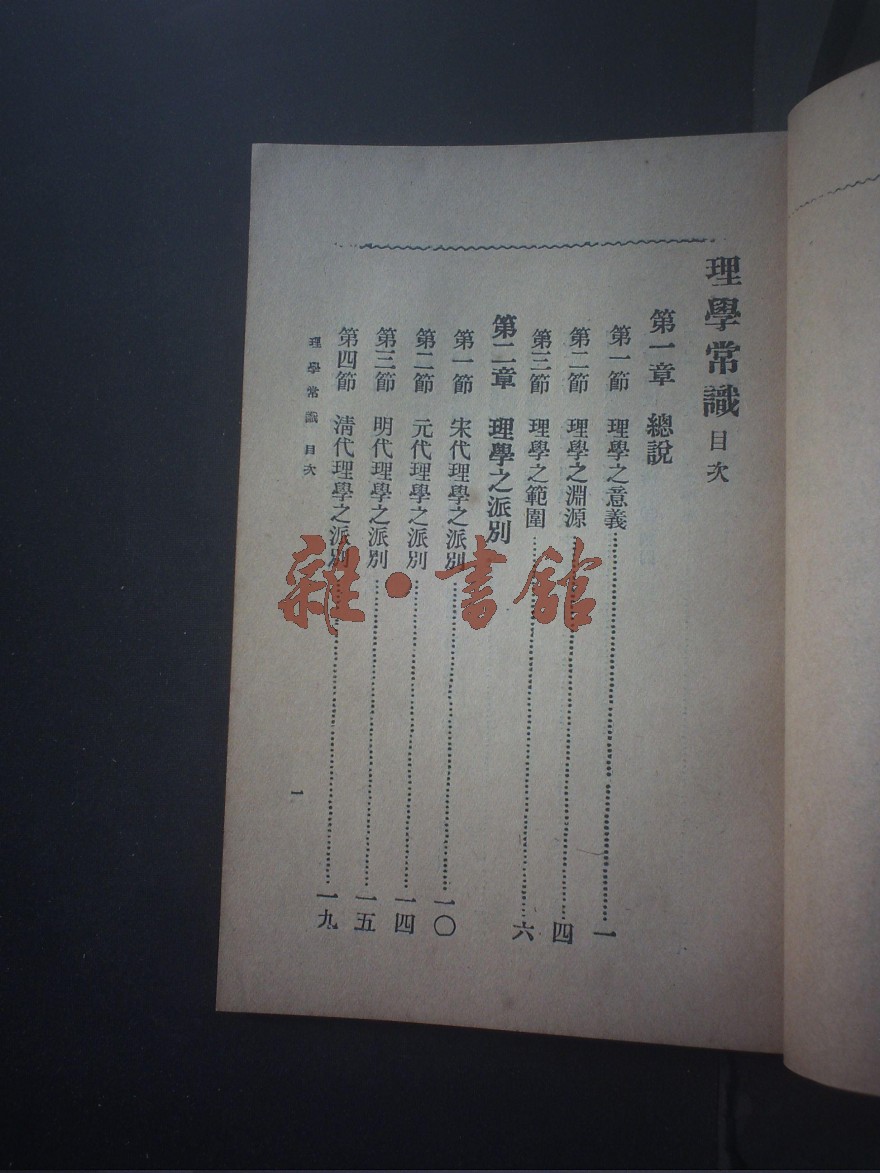 理學常識目次
第一章 總說
第一節 理學之意義………一
第二節 理學之淵源………四
第三節 理學之範圍………六
第二章 理學之派別
第一節 宋代理學之派別………一〇
第二節 元代理學之派別………一四
第三節 明代理學之派別………一五
第四節 清代理學之派別………一九
理學常識 目次
一
雜·書館